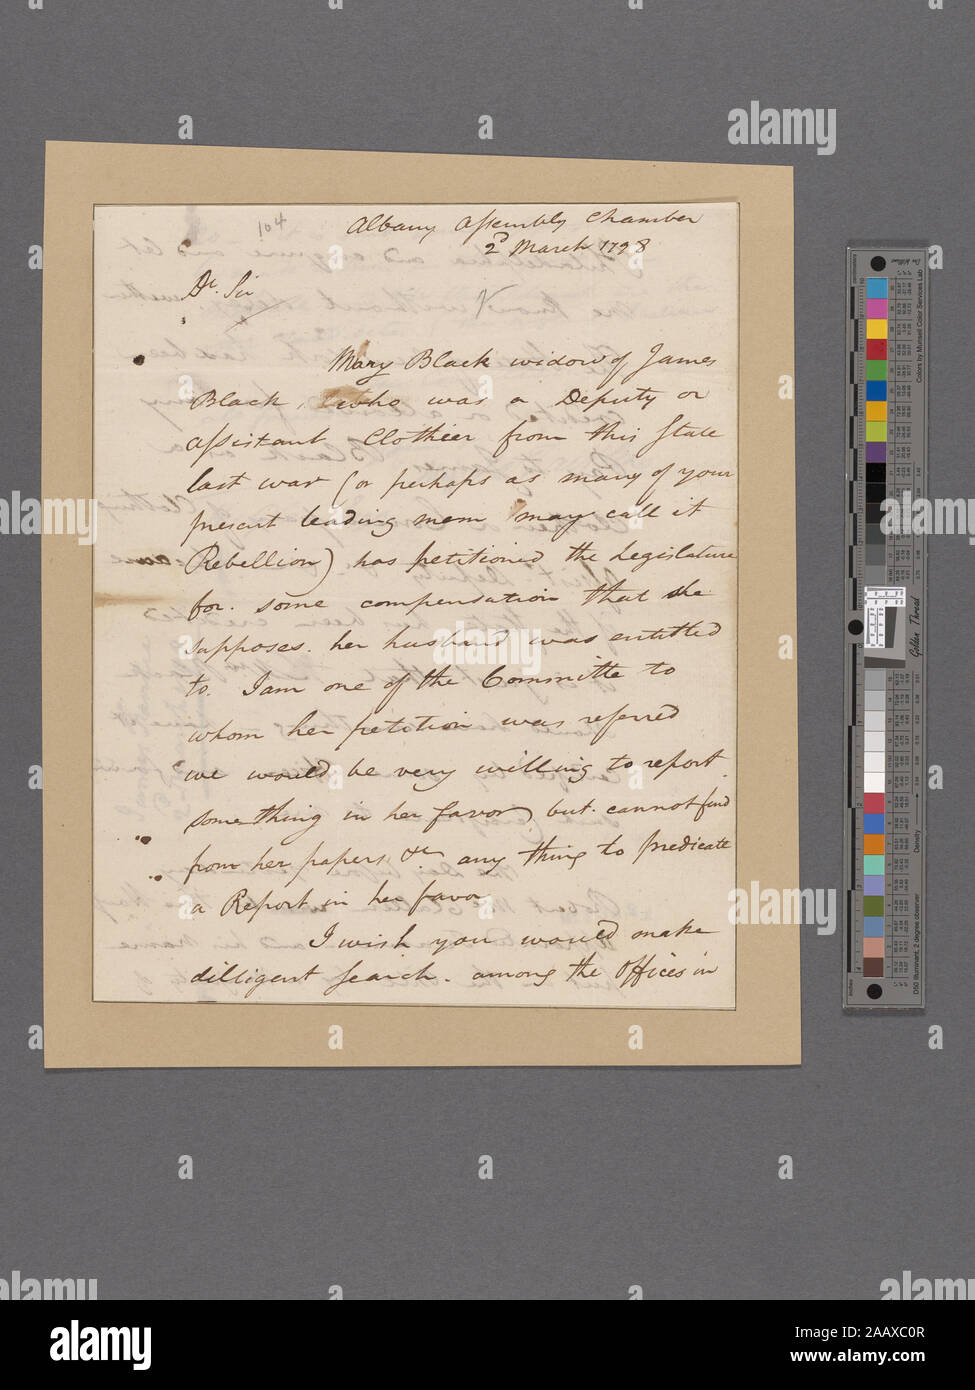 104
Albany Assembly Chamber
2d March 1798
Dr. Sir
Mary Black widow of James
Black, who was a Deputy or
assistant Clothier from this State
last war (or perhaps as many of your
present leading men may call it
Rebellion) has petitioned the Legislature
for some compensation that she
supposes her husband was entitled
to. I am one of the Committe to
whom her petition was referred
we would be very willing to report
something in her favor, but cannot find
from her papers &c any thing to predicate
a Report in her favor
I wish you would make
dilligent search among the Offices in
Colors by Munsell Color Services Lab
Golden Thread
Density
D50 Illuminant, 2 degree observer
inches
alamy
Image ID: 2AAXC0R
www.alamy.com